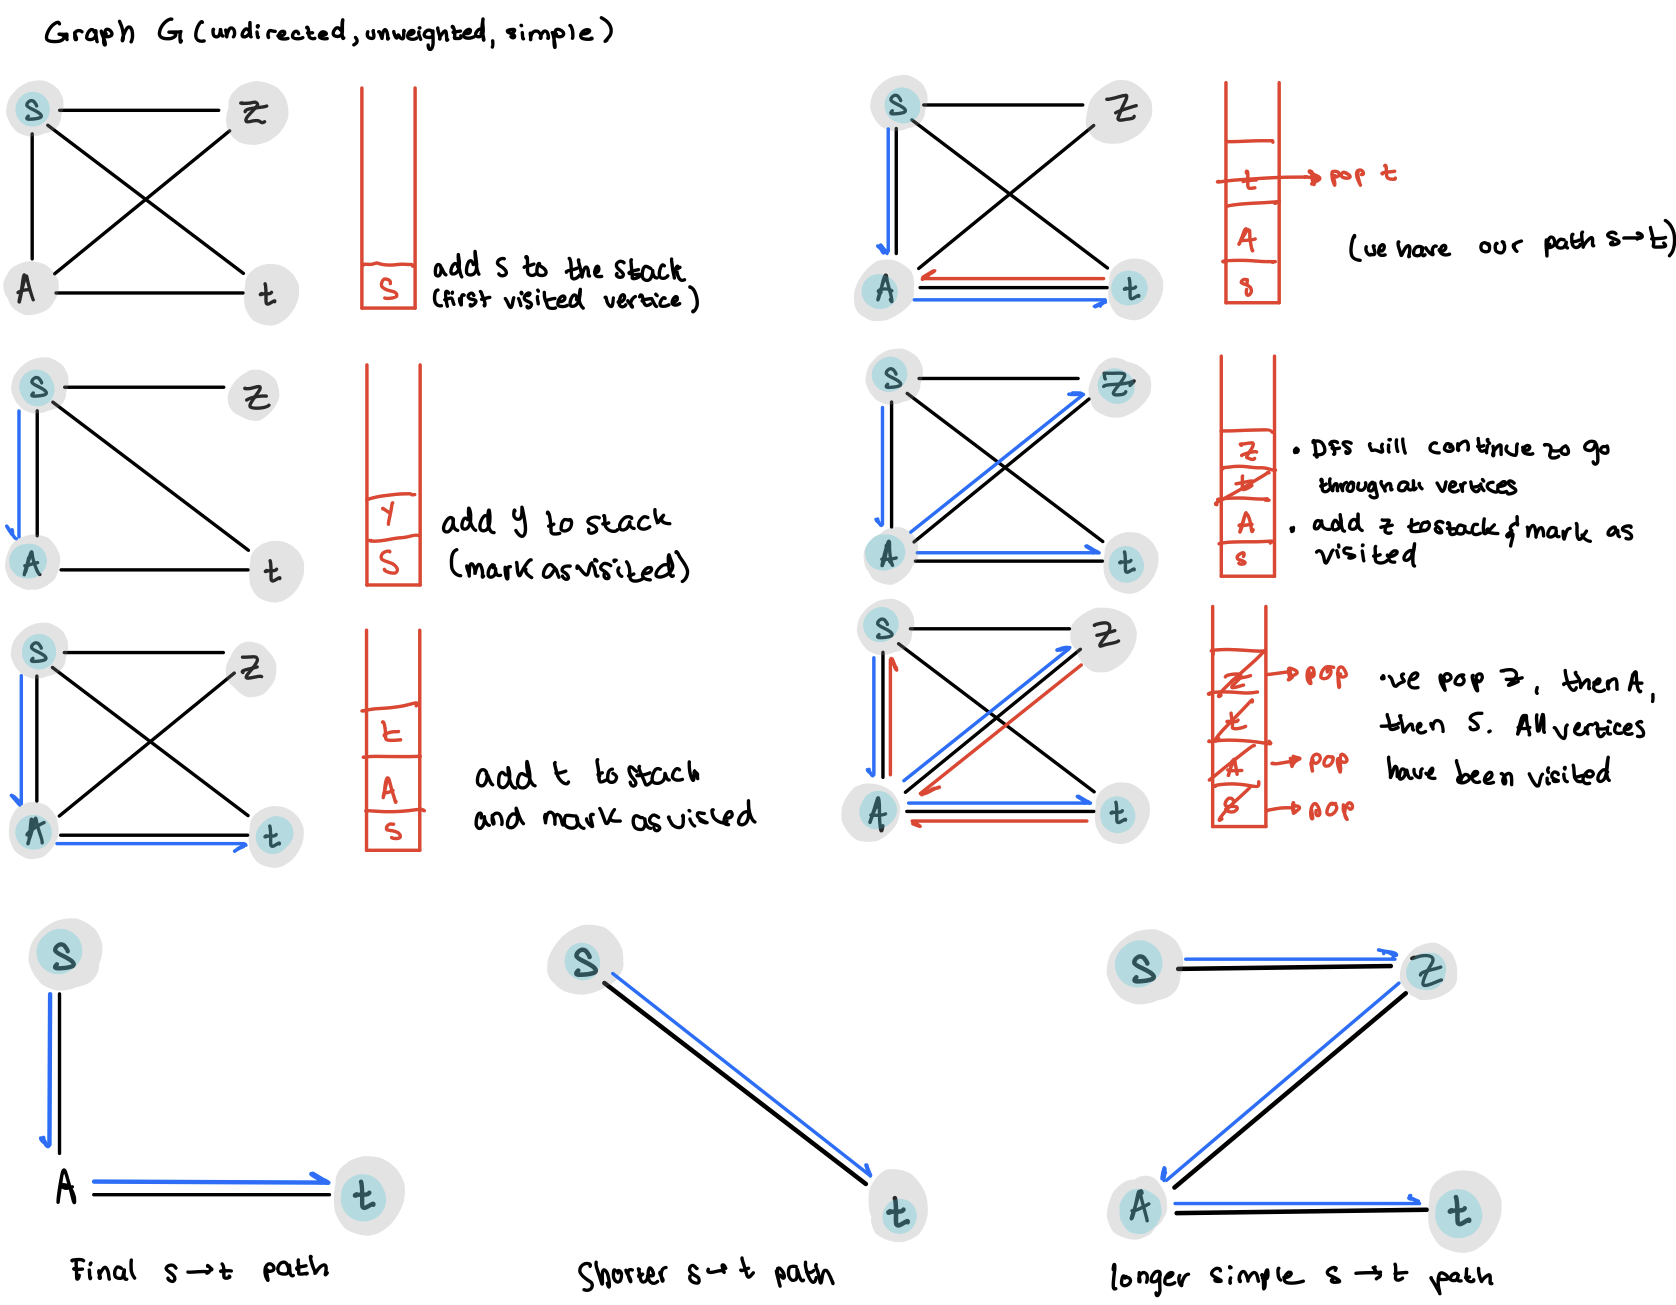 Graph G (undirected, unweighted, simple)
S
Z
A
t
S
add S to the stack
(first visited vertice)
S
Z
A
t
Y
S
add Y to stack
(mark as visited)
S
Z
A
t
t
A
S
add t to stack
and mark as visited
S
Z
A
t
t
A
S
pop t
(we have our path s→t)
S
Z
A
t
Z
t
A
S
• DFS will continue to go
through all vertices
• add z to stack & mark as
visited
S
Z
A
t
Z
t
A
S
pop
pop
pop
• we pop Z, then A,
then S. All vertices
have been visited
S
A
t
Final s→t path
S
t
Shorter s→t path
S
Z
A
t
longer simple s→t path